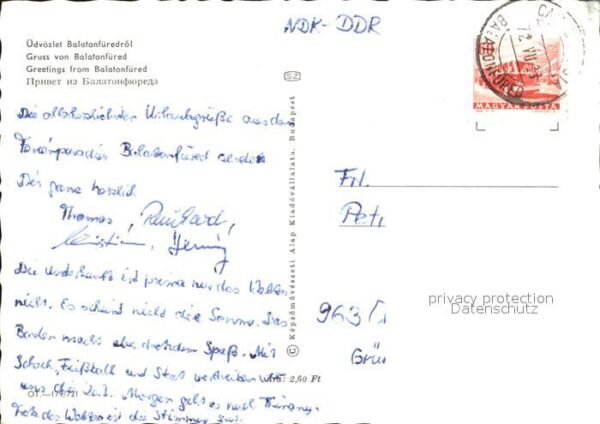 NDK-DDR
Üdvözlet Balatonfüredről
Gruss von Balatonfüred
Greetings from Balatonfüred
Привет из Балатонфюреда
SZ
BALATONFÜRED
72 VII
MAGYAR POSTA
Die allerherzlichsten Urlaubsgrüße aus dem
Ferienparadies Balatonfüred sendet
Dir ganz herzlich
Thomas, Reinhard,
Christian, Henning
Die Unterkunft ist prima nur das Wetter
nicht. Es scheint nicht die Sonne. Das
Baden macht aber trotzdem Spaß. Mit
Schach, Fußball und Skat vertreiben wir
uns die Zeit. Morgen geht es nach Tihany.
Trotz des Wetters ist die Stimmung gut.
Frl.
Petr
963/1
Grü
© Képzőművészeti Alap Kiadóvállalata, Budapest
Ára: 2,60 Ft
privacy protection
Datenschutz